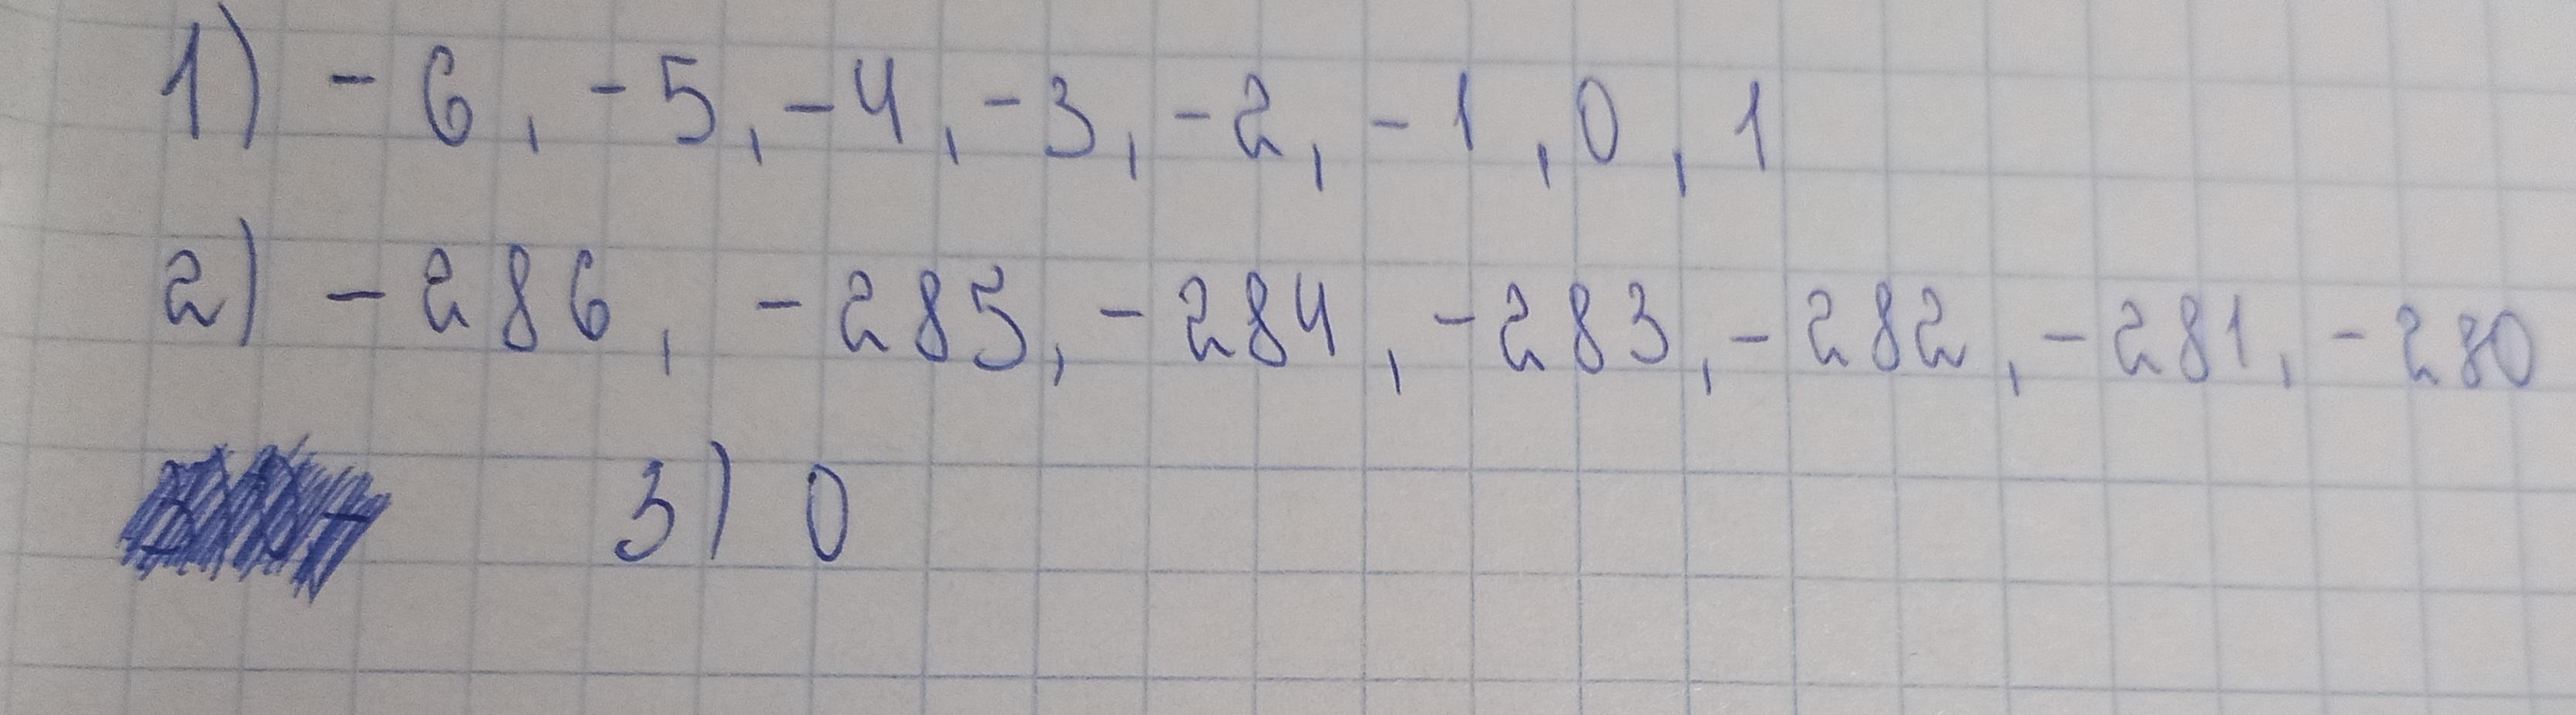 1) - 6, - 5, - 4, - 3, - 2, - 1, 0, 1
2) - 286, - 285, - 284, - 283, - 282, - 281, - 280
3) 0